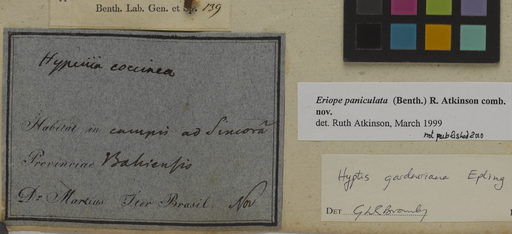 Benth. Lab. Gen. et Sp. 139
Hypenia coccinea
Habitat in campis ad Sincorá
Provinciae Bahiensis
Dr Martius Iter Brasil. Nov
Eriope paniculata (Benth.) R. Atkinson comb.
nov.
det. Ruth Atkinson, March 1999
not published 2000
Hyptis gardneriana Epling
DET G.L.R. Bromley